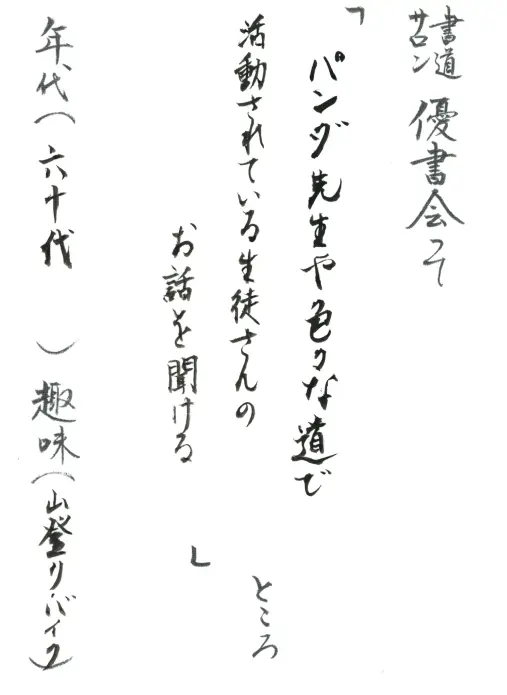 書道サロン 優書会って
「パンダ先生や色々な道で
活動されている生徒さんの
お話を聞ける」
ところ
年代（六十代）趣味（山登り・バイク）